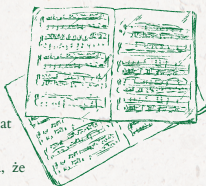 at
, że